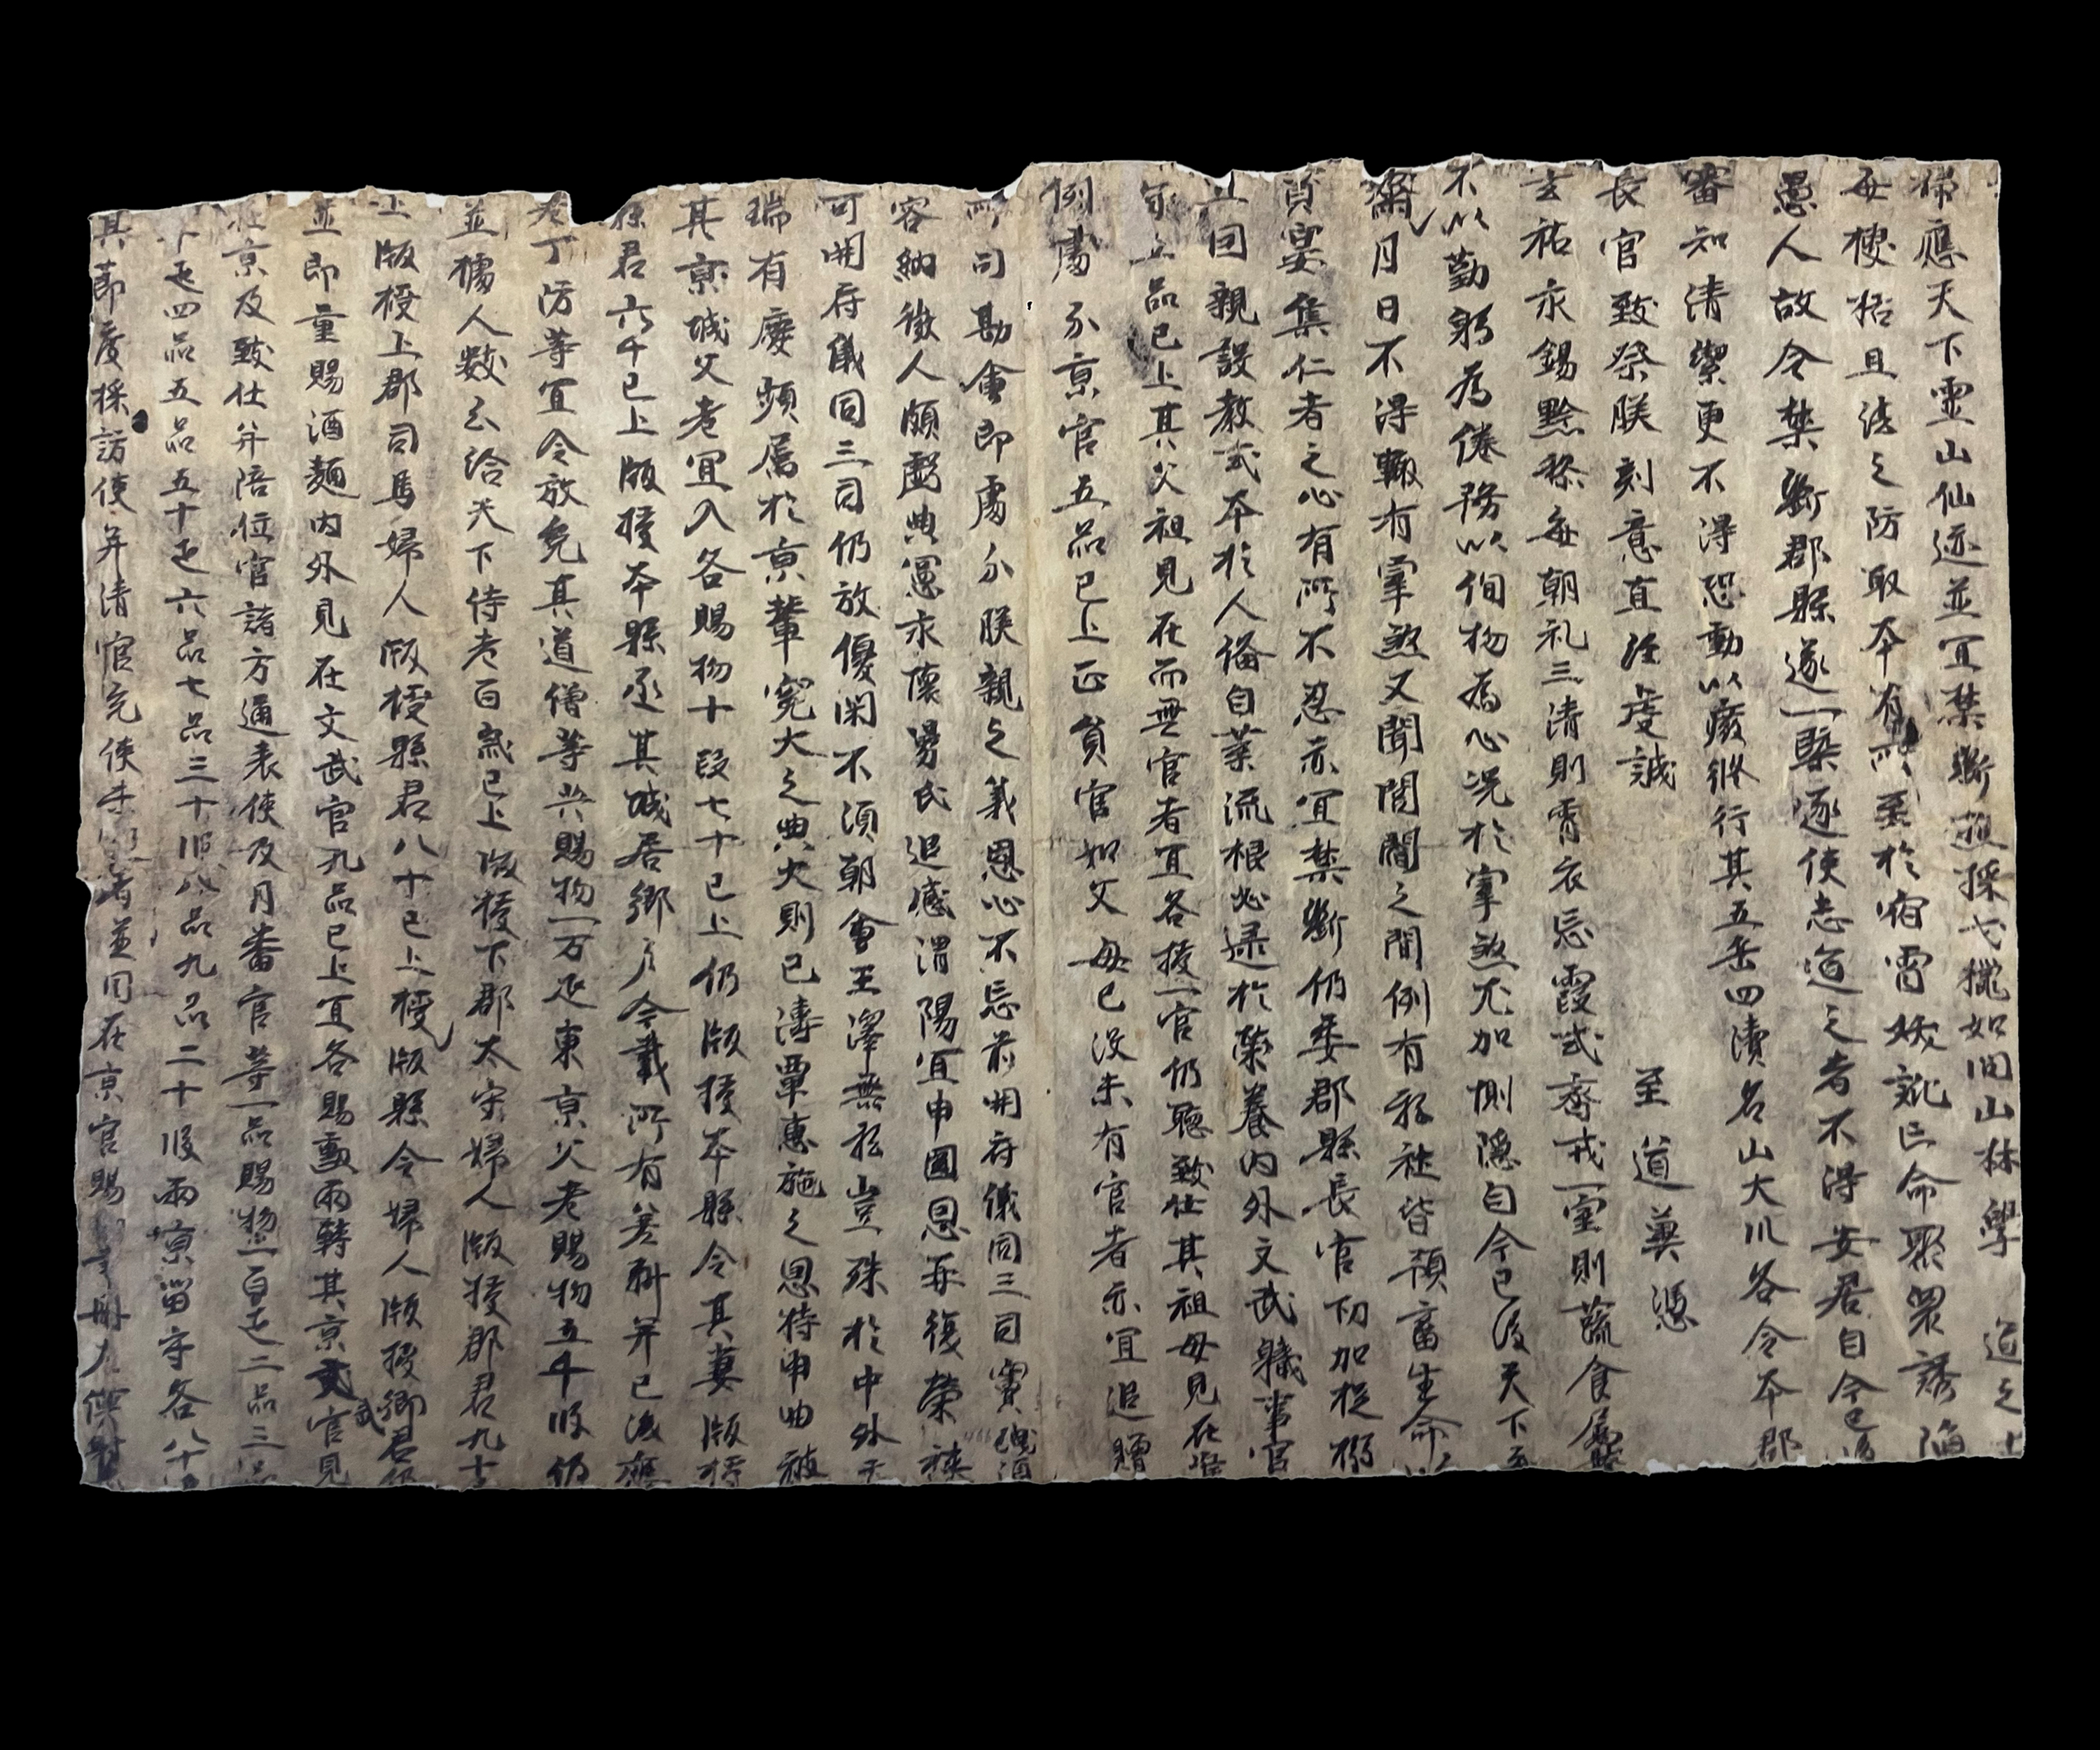 佈應天下靈山仙迹並宜禁斷弋獵採如聞山林學道之士
每挭括且法之防取本有所至於宿宵妖訛亡命聚衆誘陷
愚人故令禁斷郡縣遂一槩逐使志道之者不得安居自今已後
審知清潔更不得恐動以廢修行其五岳四瀆名山大川各令本郡
長官致祭朕刻意真經虔誠至道冀憑
玄祐永錫黔黎每朝礼三清則宵衣忘寢或齋戒一室則蔬食
不以勤躬為倦務以徇物為心況於宰煞尤加惻隱自今已後天下至
齋月日不得輒有宰煞又聞閭閻之間例有私社皆預畜生命以
資宴集仁者之心有所不忍亦宜禁斷仍委郡縣長官切加捉搦
且因親設教或本於人俗自葉流根必逮於榮養內外文武軄事官
五品已上其父祖見在而無官者宜各授一官仍聽致仕其祖母見在
例處分京官五品已上正員官如父母已没未有官者亦宜追贈
所司勘會即處分朕親之義恩心不忘前開府儀同三司竇
容納微人頗虧典憲永懷舅氏追感渭陽宜申國恩再復榮
可開府儀同三司仍放優閑不須朝會王澤無私豈殊於中外天
瑞有慶頻屬於京輦寬大之典大則已溥覃惠施之恩特申曲被
其京城父老宜入各賜物十段七十已上仍版授本縣令其妻版授
縣君六十已上版授本縣丞其城居鄉戶今載所有差科并已後應
老丁防等宜令放免其道僧等共賜物一万疋東京父老賜物五千段仍
並㯫人數均給天下侍老百歲已上版授下郡太守婦人版授郡君九十
上版授上郡司馬婦人版授縣君八十已上授版縣令婦人版授鄉君仍
並即量賜酒麵內外見在文武官九品已上宜各賜勳兩轉其京武官見
在京及致仕并陪位官諸方通表使及月番官等一品賜物一百疋二品三品
疋四品五品五十疋六品七品三十段八品九品二十段兩京留守各八十
其節度採訪使并清官充使未還者並同在京官賜等冊九使對